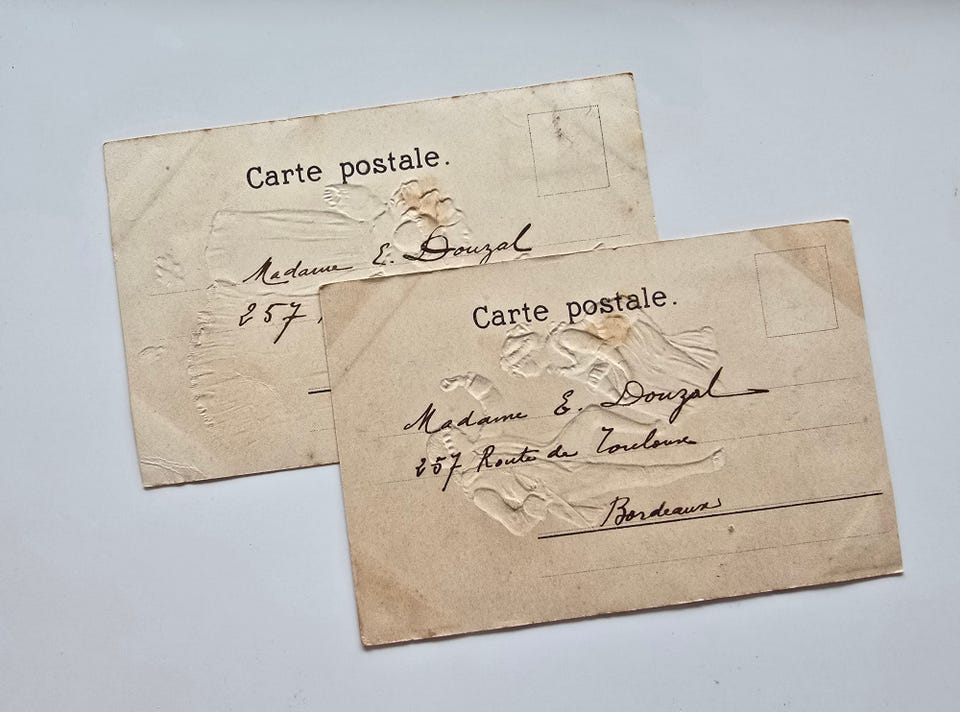 Carte postale.
Madame E. Douzal
257
Carte postale.
Madame E. Douzal
257 Route de Toulouse
Bordeaux